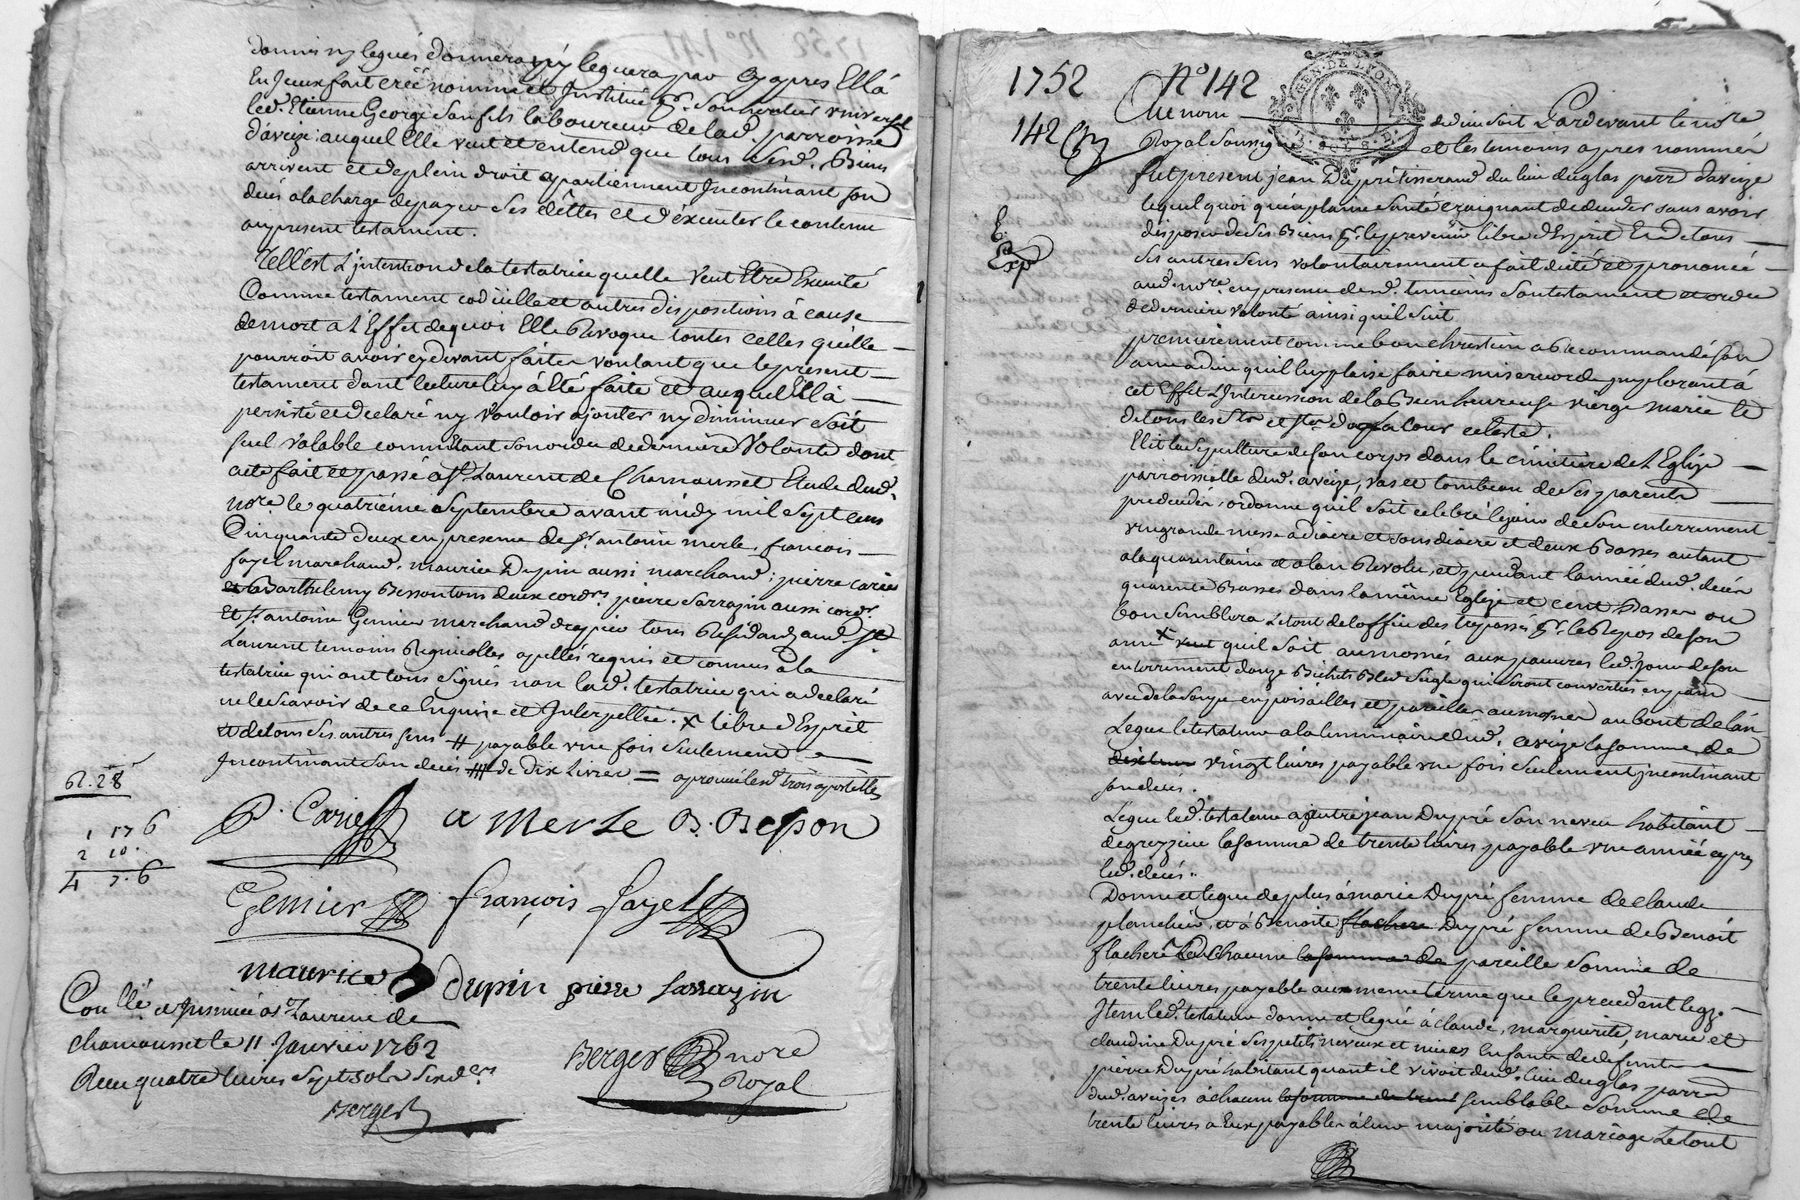 donnés ny legués donnera ny leguera par cy apres Ell'a
En Jceux fait créé nommé et Jnstitué pr. Son heritier vniversel
led. Etienne George Son fils laboureur de lad. parroisse
d'aveize auquel Elle veut et entend que tous Sesd. Biens
arrivent et de plein droit apartiennent Jncontinant Son
decés a la charge de payer Ses dêttes et d'éxecuter le contenu
au present testament.
Telle est L'jntention de la testatrice quelle veut Etre Executé
Comme testament codicille et autres dispositions à cause
de mort a L'Effet de quoi Elle Revoque toutes celles qu'elle
pourroit avoir cy devant faites voulant que le present
testament dont lecture luy à été faite et auquel Ell'a
persisté et declaré n'y vouloir ajouter ny diminuer Soit
Seul valable contenant Son ordre de derniere Volonté dont
acte fait et passé a St. Laurent de Chamousset Etude dud.
nore le quatriéme Septembre avant midy mil Sept cens
Cinquante deux en presence de Sr. antoine merle, francois
fayel marchand, maurice Dupin aussi marchand; pierre carie
et Barthelemy Besson tous deux cordrs. pierre Sarrazin aussi cordr.
Et Sr. antoine Genier marchand drapier tous Residants aud. St.
Laurent temoins Regnicolles apellés requis et connus a la
testatrice qui ont tous Signés non lad. testatrice qui a declaré
ne le Scavoir de ce Enquise et Jnterpellée. x libre d'Esprit
et de tous Ses autres Sens # payable vne fois Seulement
Jncontinant Son decés #| de dix Livres = aprouvé lesd. trois apostilles
62.28
P. Carie a Merle B. Besson
1 17 6
2 10.
4 7.6
Genier françois fayel
maurice Dupin pierre Sarrazin
Con llé et Jnsinué a St. Laurent de
chamousset le 11 Janvier 1762
Reçu quatre livres Sept Sols Six drs
Berger
Berger nore
Royal
1752 No 142
142
E.
Exp
Au nom de dieu Soit Pardevant le nore
GEN. DE LYON
Royal Soussigné et les temoins apres nommés
fut present jean Dupré tisserand du lieu du glas parr. d'aveize
lequel quoi qu'en plaine Santé craignant de deceder sans avoir
disposer de Ses Biens pr. le prevenir libre d'Esprit Et de tous
Ses autres Sens volontairement a fait dicté et prononcé
aud. nore. en presence desd. temoins Son testament et ordre
de derniere Volonté ainsi qu'il Suit
premierement comme bon chrestien a Recommandé son
ame a dieu qu'il luy plaise faire misericorde jmplorant à
cet Effet L'Jntercession de la Bien heureuse vierge marie Et
de tous les Sts et Stes de la Cour celeste.
Elit la Sepulture de Son corps dans le cimitiere de L'Eglise
parroissialle dud. aveize, vas et tombeau de Ses parents
predecedés, ordonne qu'il Soit celebré le jour de Son enterrement
vne grande messe a diacre et Sous diacre et deux Basses autant
a la quarantaine et a l'an Revolu, et pendant l'année dud. decés
quarente Basses dans la même Eglise et cent Basses ou
bon Semblera Le tout de l'office des trepassés pr. le Repos de Son
ame x veut qu'il Soit aumosnés aux pauvres led. jour de son
enterrement douze Bichets Bled Seigle qui Seront convertis en pain
avec de la Soupe en poisailles et pareille aumosne au bout de l'an
Legue le testateur a la luminaire dud. aveize la Somme de
dix livres vingt livres payable vne fois Seulement jncontinant
son decés.
Legue led. testateur a autre jean Dupré Son neveu habitant
de grezieu la Somme de trente livres payable vne année apres
led. decés..
Donne et legue de plus à marie Dupré femme de claude
plancher, et à Benoite flachere Dupré femme de Benoit
flacheré Et chacune la somme de pareille Somme de
trente livres payable aux meme terme que le precedent legs.
Jtem led. testateur donne et legue à claude, marguerite, marie et
claudine Dupré Ses petits neveux et nieces Enfants de défunt
pierre Dupré habitant quant il vivoit dud. lieu du glas parr.
dud. aveizes à chacun la somme de trent Semblable Somme de
trente livres a Eux payable à leur majorité ou mariage Le tout